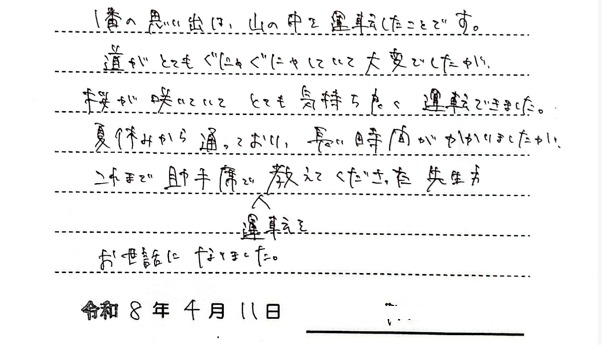 1番の思い出は、山の中を運転したことです。
道がとてもぐにゃぐにゃしていて大変でしたが、
桜が咲いていてとても気持ち良く運転できました。
夏休みから通っており、長い時間がかかりましたが、
これまで助手席で教えてくださった先生方
運転を
お世話になりました。
令和8年4月11日